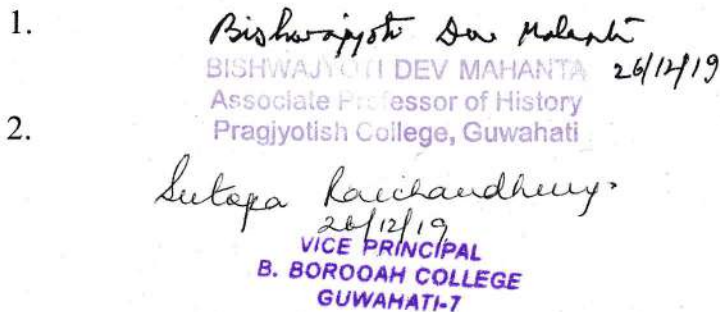 1.
Bishwajyoti Dev Mahanta
26/12/19
BISHWAJYOTI DEV MAHANTA
Associate Professor of History
2.
Pragjyotish College, Guwahati
Sutapa Raichaudhury.
26/12/19
VICE PRINCIPAL
B. BOROOAH COLLEGE
GUWAHATI-7